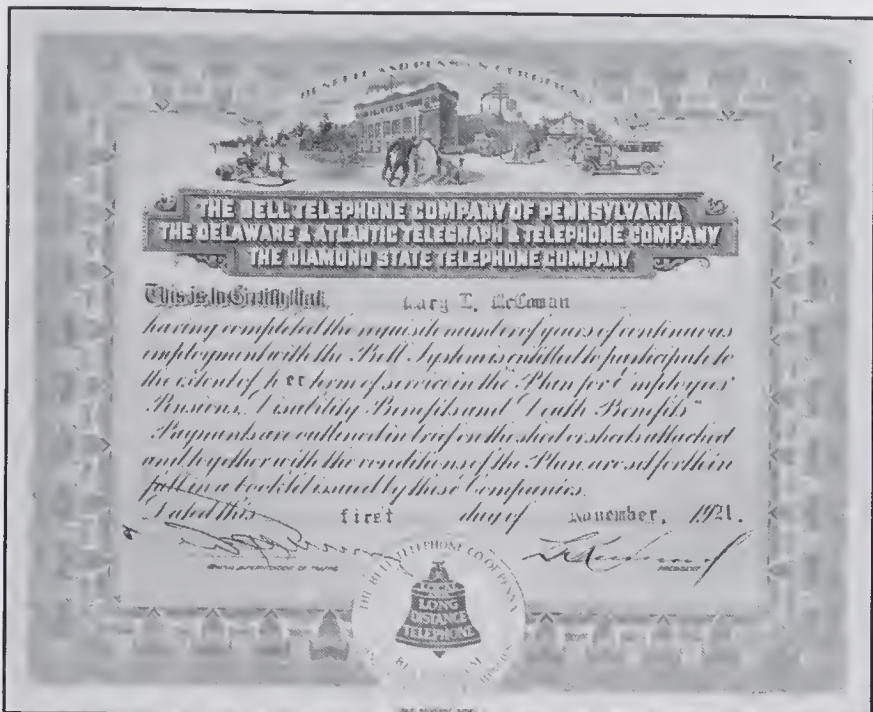 BENEFIT AND PENSION CERTIFICATE
THE BELL TELEPHONE COMPANY OF PENNSYLVANIA
THE DELAWARE & ATLANTIC TELEGRAPH & TELEPHONE COMPANY
THE DIAMOND STATE TELEPHONE COMPANY
This is to Certify that, Mary
having completed the requisite number of years of continuous
employment with the Bell System is entitled to participate to
the extent of her term of service in the "Plan for Employees'
Pensions, Disability Benefits and Death Benefits"
Payments are outlined in brief on the sheet or sheets attached
and together with the conditions of the Plan are set forth in
full in a booklet issued by these Companies.
Dated this first day of November, 1921.
GENERAL SUPERINTENDENT OF TRAFFIC
PRESIDENT
THE BELL TELEPHONE CO. OF PENNA
LOCAL
LONG
DISTANCE
TELEPHONE